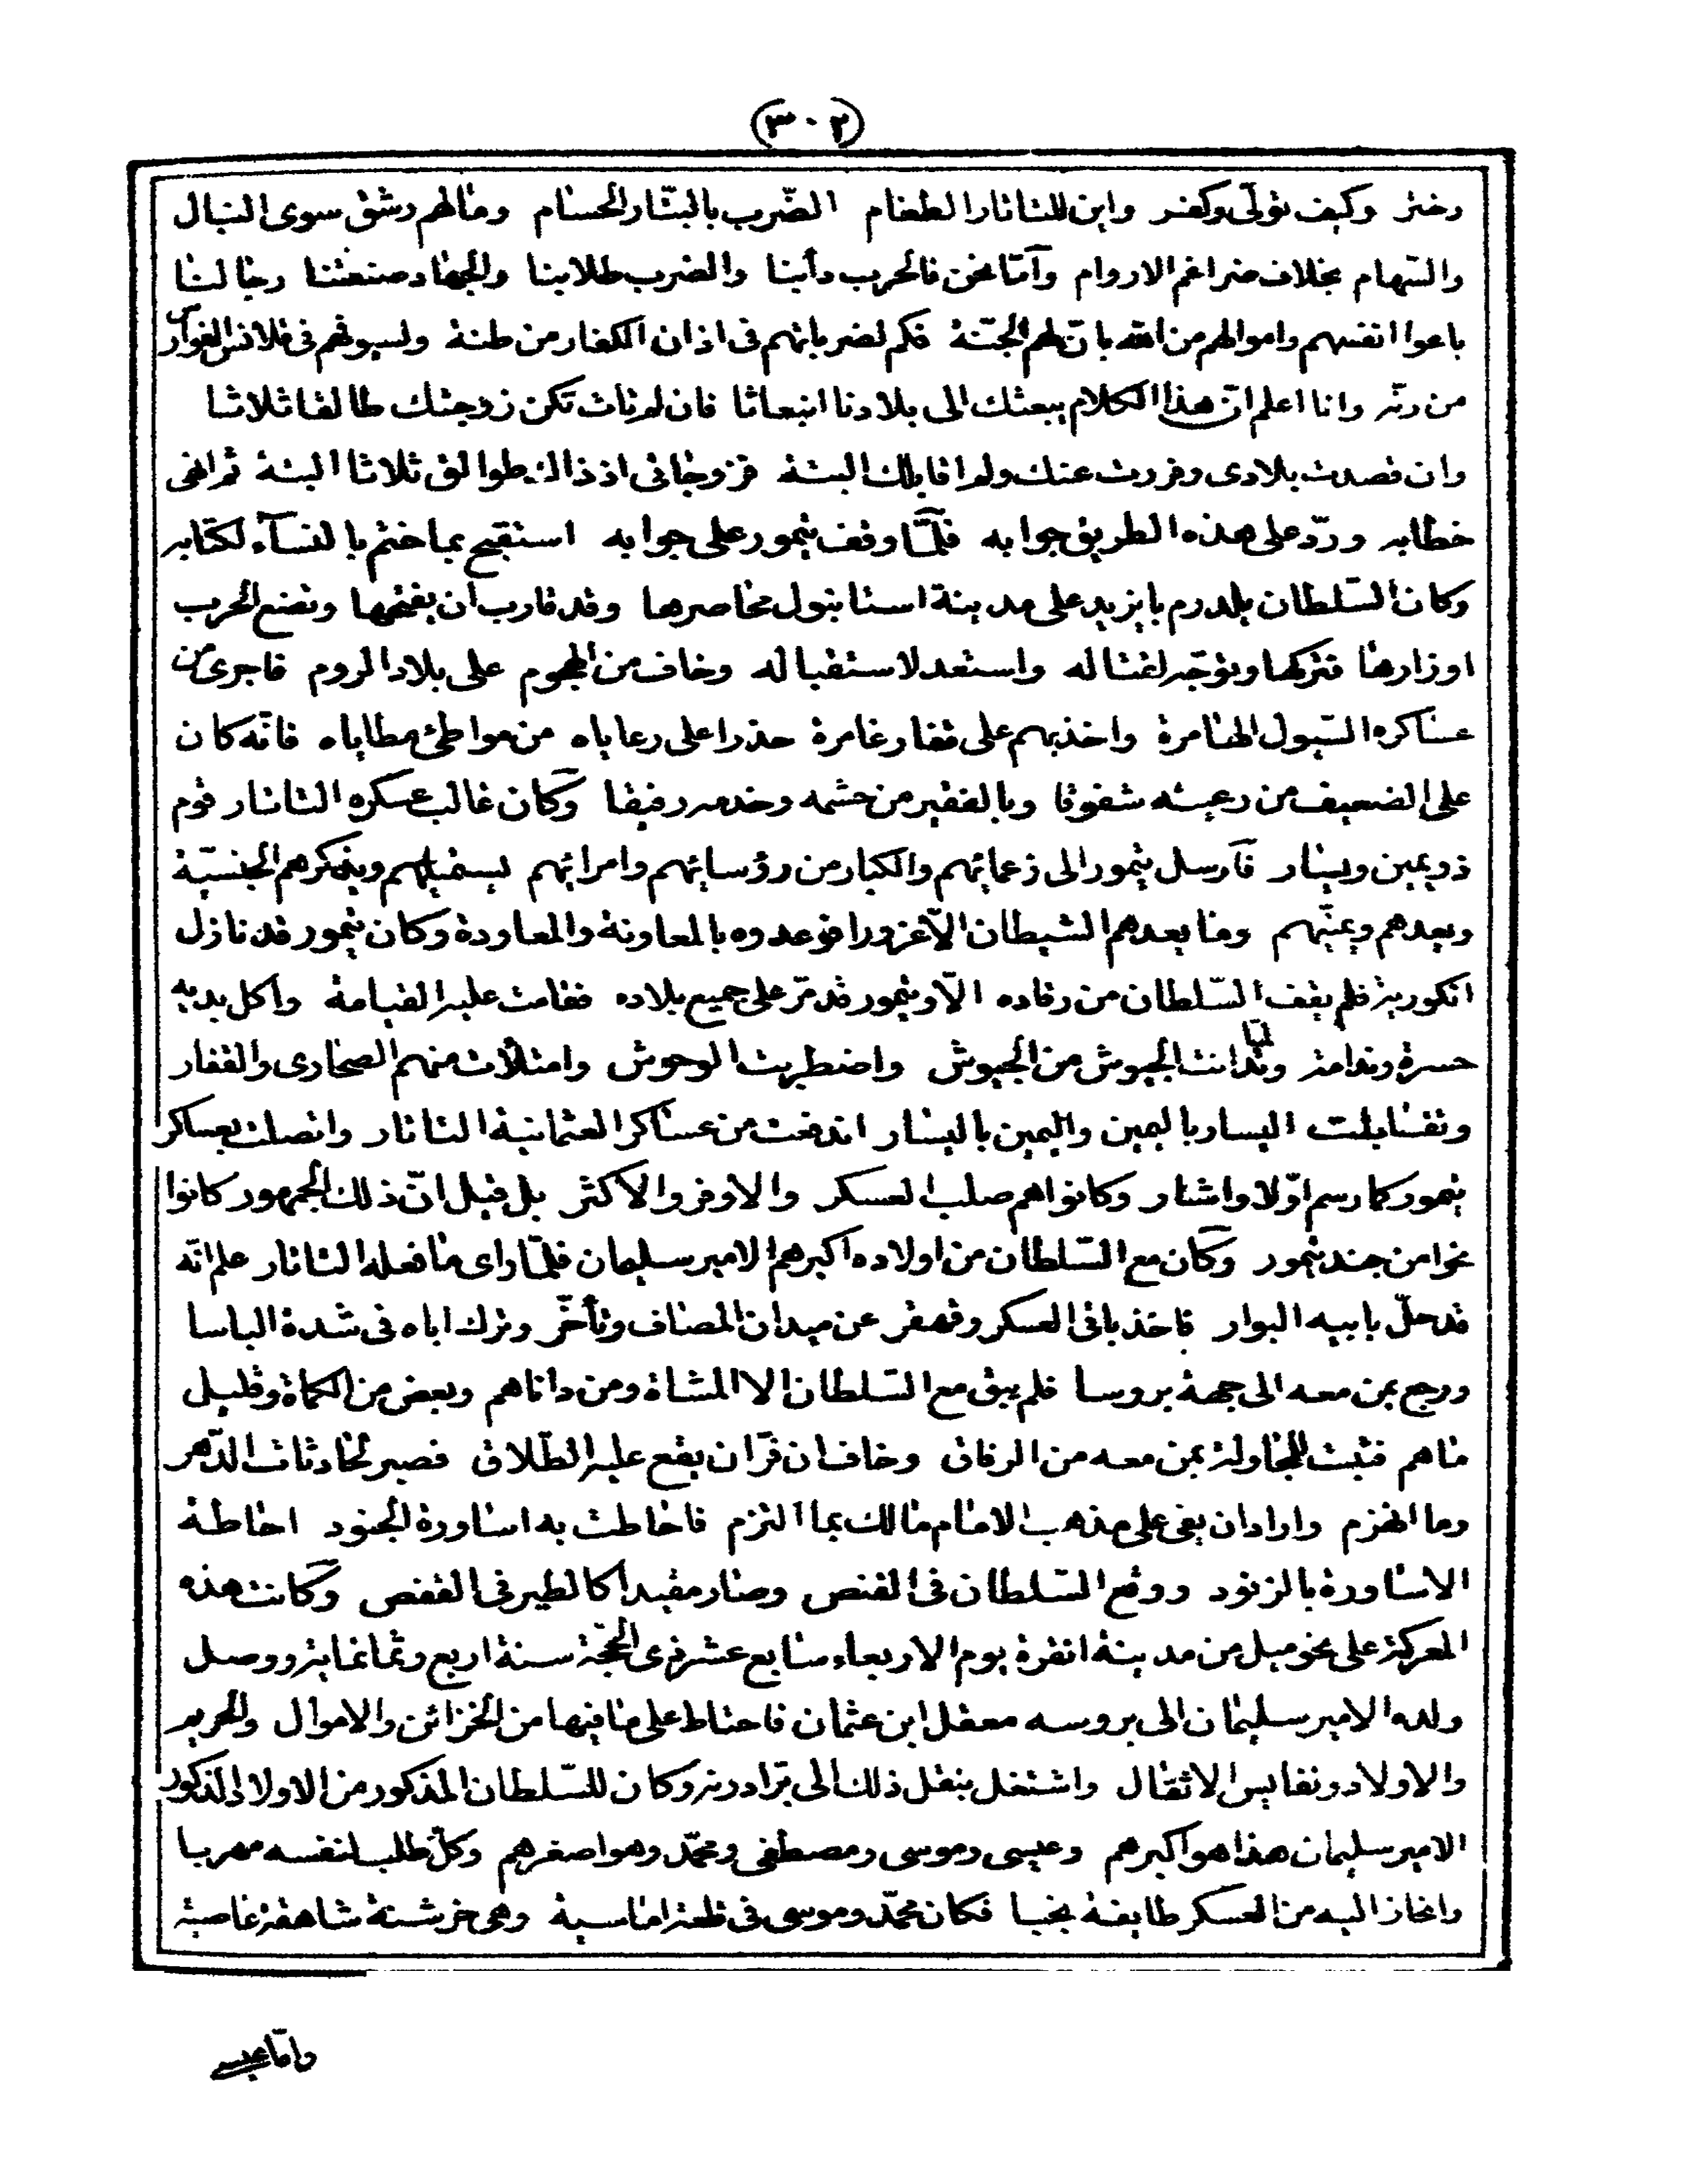 (٣٠٢)
وختر وكيف تولّى وكفر واين للتاتار الطغام الضّرب بالبتّار الحسام ومالهم رشق سوى النبال
والسّهام بخلاف ضراغم الاروام وأمّا نحن فالحرب دأبنا والضرب طلابنا والجهاد صنعتنا رجالنا
باعوا انفسهم واموالهم من الله بانّ لهم الجنّة فكم لضرباتهم فى اذان الكفار من طنة ولسيوفهم فى قلانس القوارس
من رنّه وانا اعلم انّ هذا الكلام يبعثك الى بلادنا انبعاثا فان لم تات تكن زوجتك طالقا ثلاثا
وان قصدت بلادى وفررت عنك ولم اقابلك البتة فزوجاتى اذ ذاك طوالق ثلاثا البتة ثم انهى
خطابه وردّ على هذه الطريق جوابه فلمّا وقف تيمور على جوابه استقبح بما ختم بالنسآء لكتابه
وكان السّلطان يلدرم بايزيد على مدينة استانبول محاصرها وقد قارب ان يفتحها وتضع الحرب
اوزارها فتركها وتوجّه لقتاله واستعد لاستقباله وخاف من الهجوم على بلاد الروم فاجرى من
عساكره السّيول الهامرة واخذ بهم على قفار غامرة حذرا على رعاياه من مواطئ مطاياه فانّه كان
على الضعيف من رعيته شفوقا وبالفقير من حشمه وخدمه رفيقا وكان غالب عسكره التاتار قوم
ذو يمين ويسار فآرسل تيمور الى زعمائهم والكبار من رؤسائهم وامرائهم يستميلهم ويذكرهم الجنسيّة
ويعدهم ويمنّيهم وما يعدهم الشيطان الّا غرورا فوعدوه بالمعاونة والمعاودة وكان تيمور قد نازل
انكورية فلم يفق السّلطان من رقاده الّا وتيمور قد مرّ على جميع بلاده فقامت عليه القيامة واكل يديه
حسرة وندامة ولمّا تدانت الجيوش من الجيوش واضطربت الوحوش وامتلأت منهم الصحارى والقفار
وتقابلت اليسار باليمين واليمين باليسار اندفعت من عساكر العثمانية التاتار واتصلت بعساكر
تيمور كما رسم اوّلا واشار وكانوا هم صلب العسكر والاوفر والاكثر بل قيل انّ ذلك الجمهور كانوا
نحوا من جند تيمور وكان مع السّلطان من اولاده اكبرهم الامير سليمان فلمّا راى ما فعله التاتار علم انّه
قد حلّ بابيه البوار فاخذ باقى العسكر وقهقر عن ميدان المصاف وتأخّر وترك اباه فى شدة الباسا
ورجع بمن معه الى جهة بروسا فلم يبق مع السّلطان الا المشاة ومن داناهم وبعض من الكماة وقليل
ماهم فثبت للمجاولة بمن معه من الرفاق وخاف ان فرّ ان يقع عليه الطّلاق فصبر لحادثات الدّهر
وما انهزم واراد ان يفى على مذهب الامام مالك بما التزم فاحاطت به اساورة الجنود احاطة
الاساورة بالزنود ووقع السّلطان فى القنص وصار مقيدا كالطير فى القفص وكانت هذه
المعركة على نحو ميل من مدينة انقرة يوم الاربعاء سابع عشر ذى الحجّة سنة اربع وثمانماية ووصل
ولده الامير سليمان الى بروسه معقل ابن عثمان فاحتاط على ما فيها من الخزائن والاموال والحريم
والاولاد ونفايس الاثقال واشتغل بنقل ذلك الى برّ ادرنه وكان للسّلطان المذكور من الاولاد الذكور
الامير سليمان هذا هو اكبرهم وعيسى وموسى ومصطفى ومحمّد وهو اصغرهم وكلّ طلب لنفسه مهربا
وانحاز اليه من العسكر طايفة نجبا فكان محمّد وموسى فى قلعة اماسية وهى خرشنة شاهقة عاصية
وامّا عيسى